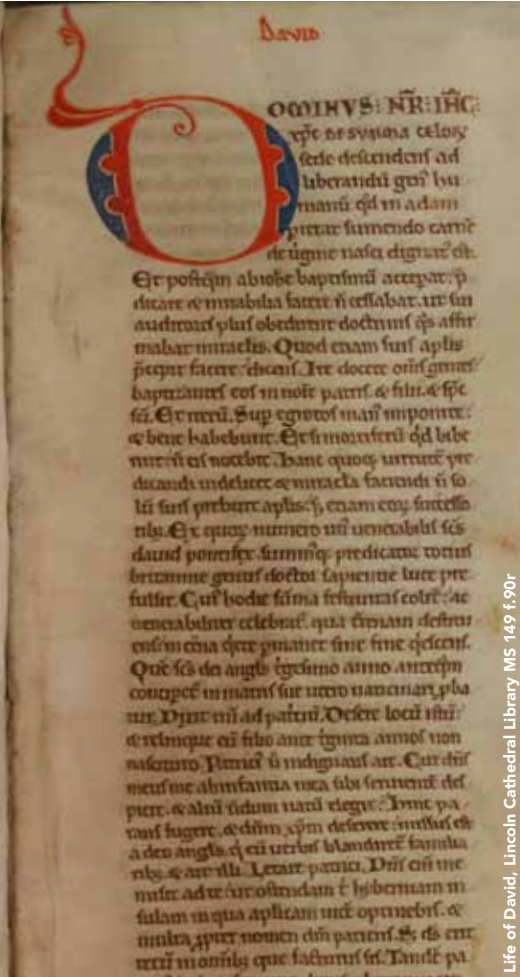 David
DOMINVS: NR̄: IHC̄:
xp̄c de summa celoꝝ
sede descendens ad
liberandū genꝰ hu
manū qd̄ in adam
perierat sumendo carnē
de uirgine nasci dignatꝰ est.
Et postq̄m a iohe baptismū acceperat: p̄
dicare & mirabilia facere n̄ cessabat. ut sui
auditores plus obedirent doctrinis q̄s affir
mabat miraclis. Quod etiam suis aplis
p̄cepit facere: dicens. Ite docete om̄s gentes:
baptizantes eos in noīe patris. & filii. & sp̄c
sc̄i. Et iterū. Sup egrotos manꝰ imponite:
& bene habebunt. Et si mortiferū qd̄ bibe
rint: n̄ eis nocebit. Hanc quoq; uirtutē pre
dicandi indelicet & miracla faciendi n̄ so
lū suis prebuit aplis: s; etiam eoꝝ successo
ribꝰ. Ex quoꝝ numero unꝰ uenerabilis sc̄s
dauid pontifex. summꝰq; predicator totius
britannie gentis doctor sapientie luce pre
fulsit. Cuiꝰ hodie sc̄ma festiuitas colit̄: ac
uenerabiliter celebrat̄.
Quē sc̄s dei anglꝰ t̄gesimo anno anteq̄m
conciperet̄ in matris sue utero uaticinari pba
tur. Dixit eni ad patriciū. Desere locū istū:
& relinque eū filio ante t̄ginta annos non
nascituro. Patriciꝰ ū indignans ait. Cur dn̄s
meus me ab infantia mea sibi seruientē des
picit. & aliū
rans fugere. & dn̄m xp̄m deserere: missus est
a deo anglꝰ. q̄ eū uerbis blandiret̄ familia
ribꝰ. & ait illi. Letare patrici. Dn̄s eni me
misit ad te: ut ostendam t̄ hyberniam in
sulam in qua aplicam uicē optinebis. &
multa ꝓpter nomen dn̄i patieris. S; ds̄ erit
tecū in omnibꝰ que facturus sis. Tandē pa
Life of David, Lincoln Cathedral Library MS 149 f.90r